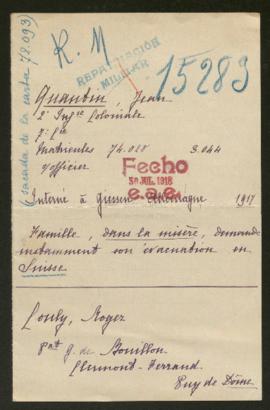 R. M
REPATRIACIÓN
MILITAR
15283
(sacada de la carta 78.093)
Quantin, Jean
2e Inf rie Coloniale
7e Cie
Matricules 74.028 3.044
s/officier
Fecho
30 JUL. 1918
Interné à Giessen Allemagne 1917
Famille, dans la misère, demande
instamment son évacuation en
Suisse
Roger
8 G. de Bouillon
Clermont-Ferrand
Puy de Dôme